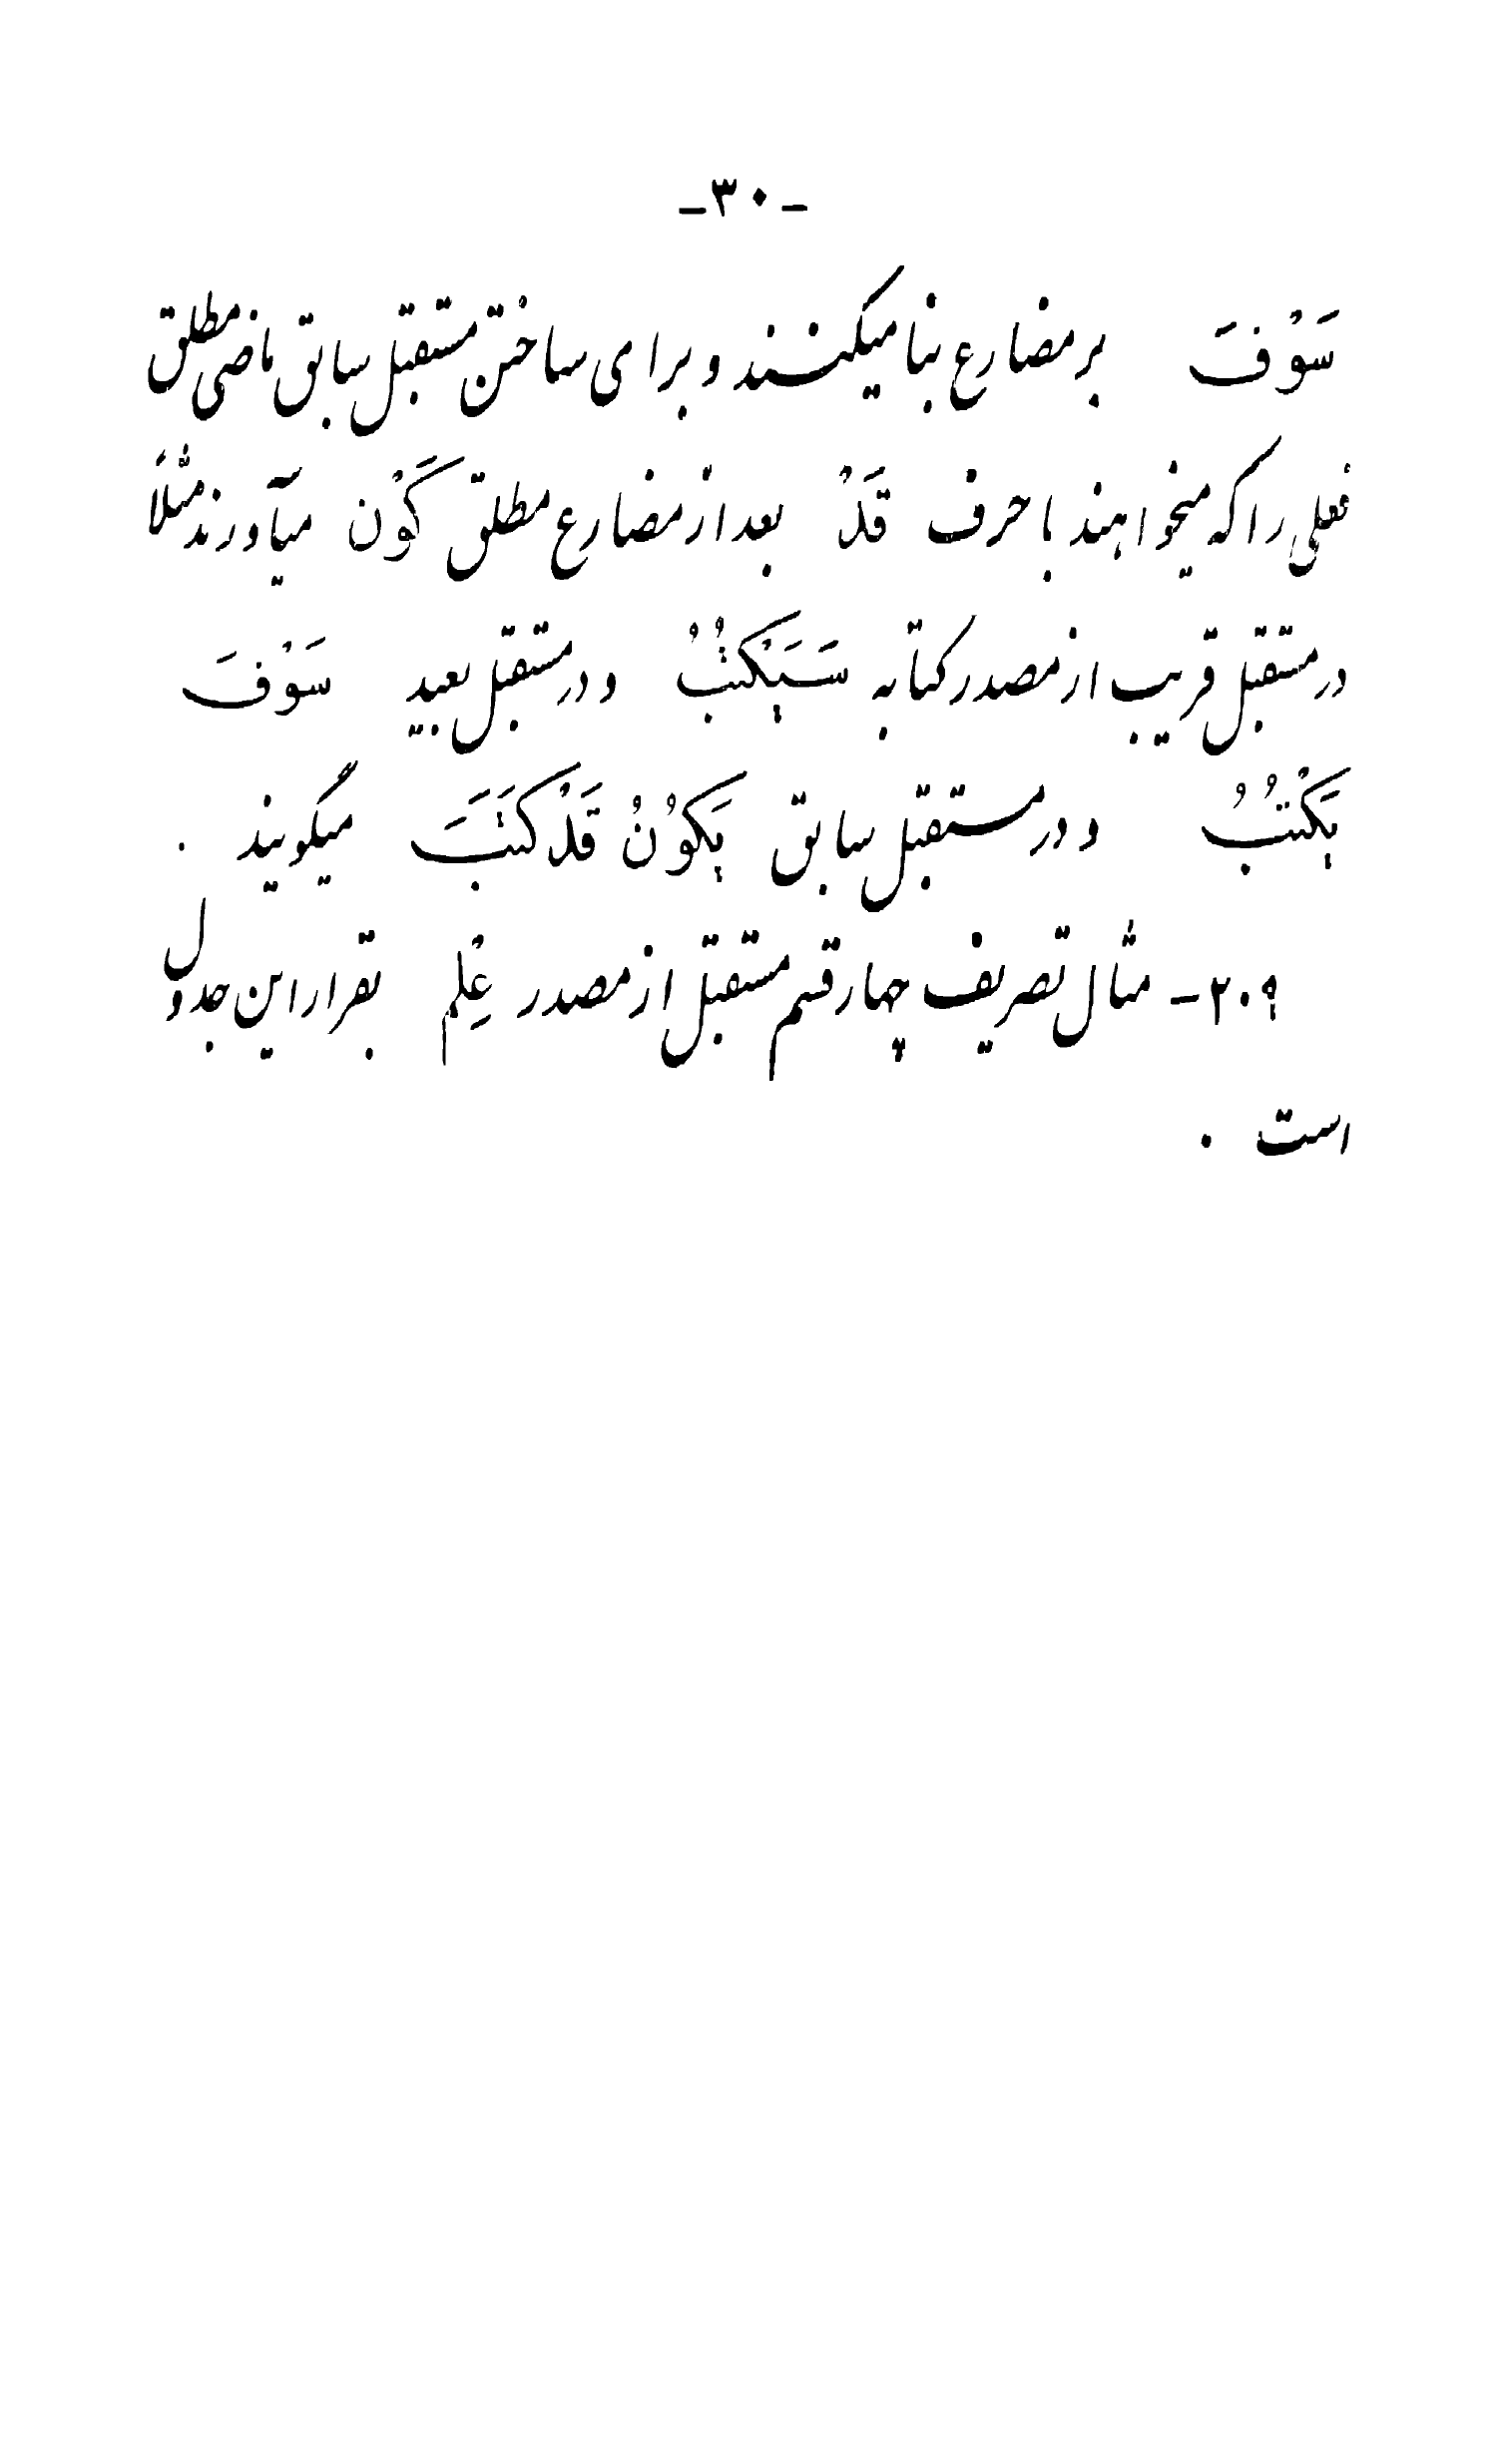 -۳۰-
سَوْفَ بر مضارع بنا میکنند و برای ساختن مستقبل سابق ماضی مطلق
فعلی را که میخواهند با حرف قَدْ بعد از مضارع مطلق کَوْن میآورند مثلاً
در مستقبل قریب از مصدر کتابه سَیَکْتُبُ و در مستقبل بعید سَوْفَ
یَکْتُبُ و در مستقبل سابق یَکُوْنُ قَدْ کَتَبَ میگویند .
۲۰۹- مثال تصریف چهار قسم مستقبل از مصدر عِلْم بقرار این جدول
است .